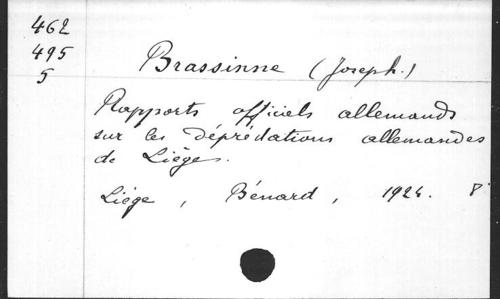 462
495
5
Brassinne (Joseph.)
Rapports officiels allemands
sur les déprédations allemandes
de Liége.
Liége, Bénard, 1924. 8°